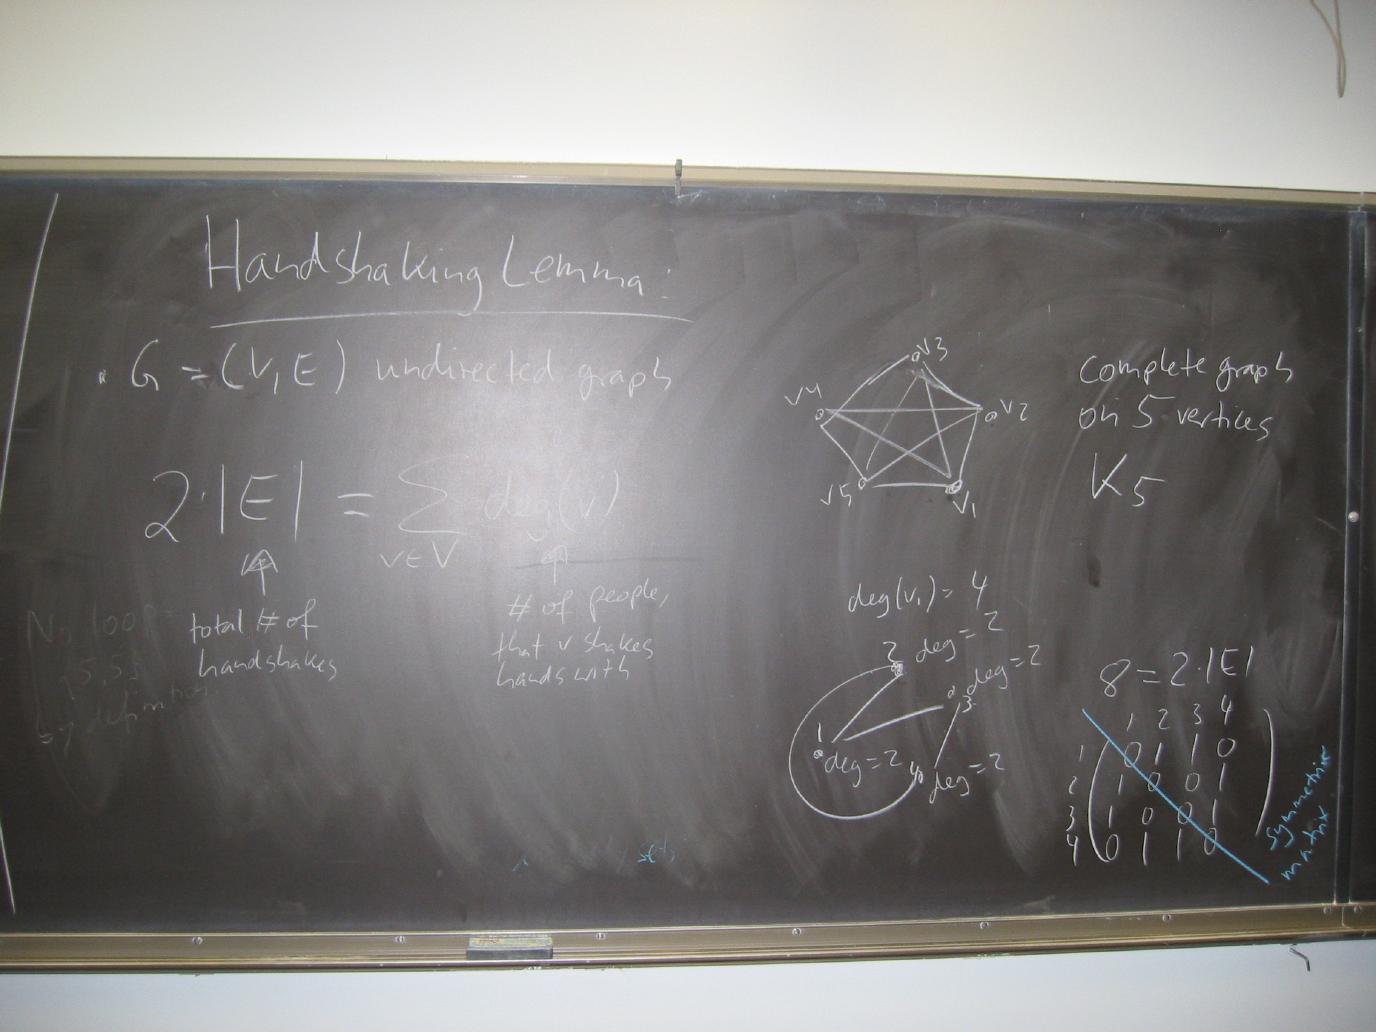 Handshaking Lemma:
. G = (V, E) undirected graph
2·|E| = ∑ deg(v)
v∈V
total # of
handshakes
# of people,
that v shakes
hands with
No loops
by definition
sets
v3
v4
v2
v5
v1
complete graph
on 5 vertices
K5
deg(v1) = 4
2 deg = 2
3 deg = 2
1 deg = 2
4 deg = 2
8 = 2·|E|
1 2 3 4
1 0 1 1 0
2 1 0 0 1
3 1 0 0 1
4 0 1 1 0
symmetric
matrix